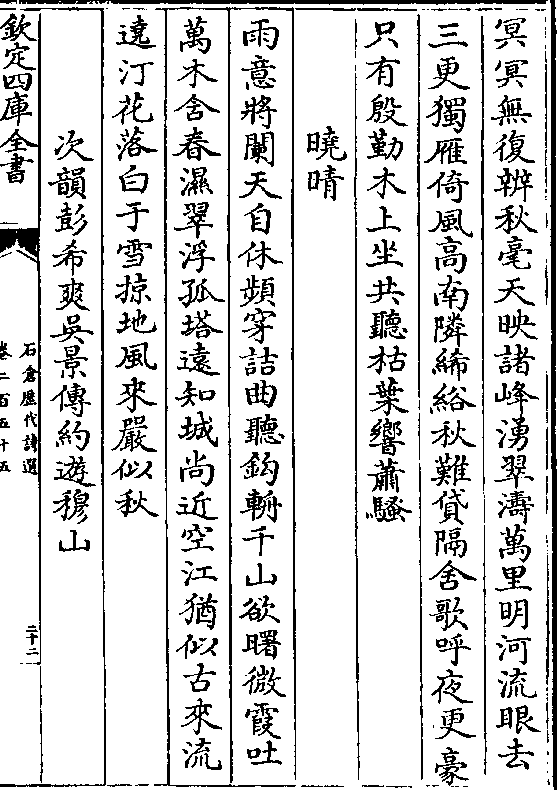 冥冥無復辨秋毫天映諸峰湧翠濤萬里明河流眼去
三更獨雁倚風高南隣絺綌秋難貸隔舍歌呼夜更豪
只有殷勤木上坐共聽枯葉響蕭騷
曉晴
雨意將闌天自休頻穿詰曲聽鈎輈千山欲曙微霞吐
萬木含春濕翠浮孤塔遠知城尚近空江猶似古來流
遶汀花落白于雪掠地風來嚴似秋
次韻彭希爽吳景傳約遊穆山
欽定四庫全書
石倉歷代詩選
卷二百五十五
二十二